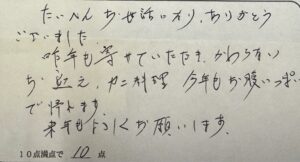 たいへんお世話になり、ありがとう
ございました
昨年も寄せていただき、かわらない
お迎え、カニ料理 今年もお腹いっぱい
で帰れます。
来年もよろしくお願いします。
10点満点で 10 点